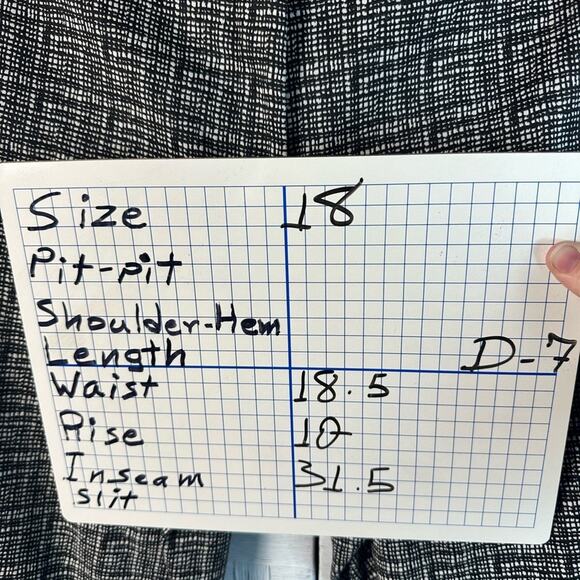 Size 18
Pit-pit
Shoulder-Hem
Length D-7
Waist 18.5
Rise 10
Inseam 31.5
slit